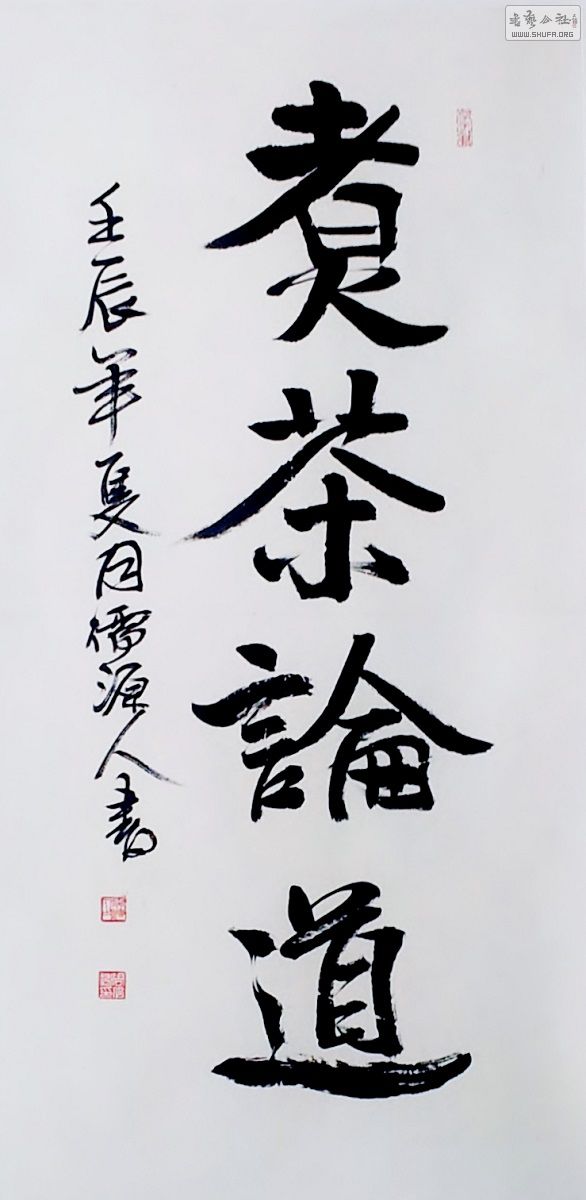 煮茶論道
壬辰年夏月儒源人書
书艺公社
WWW.SHUFA.ORG